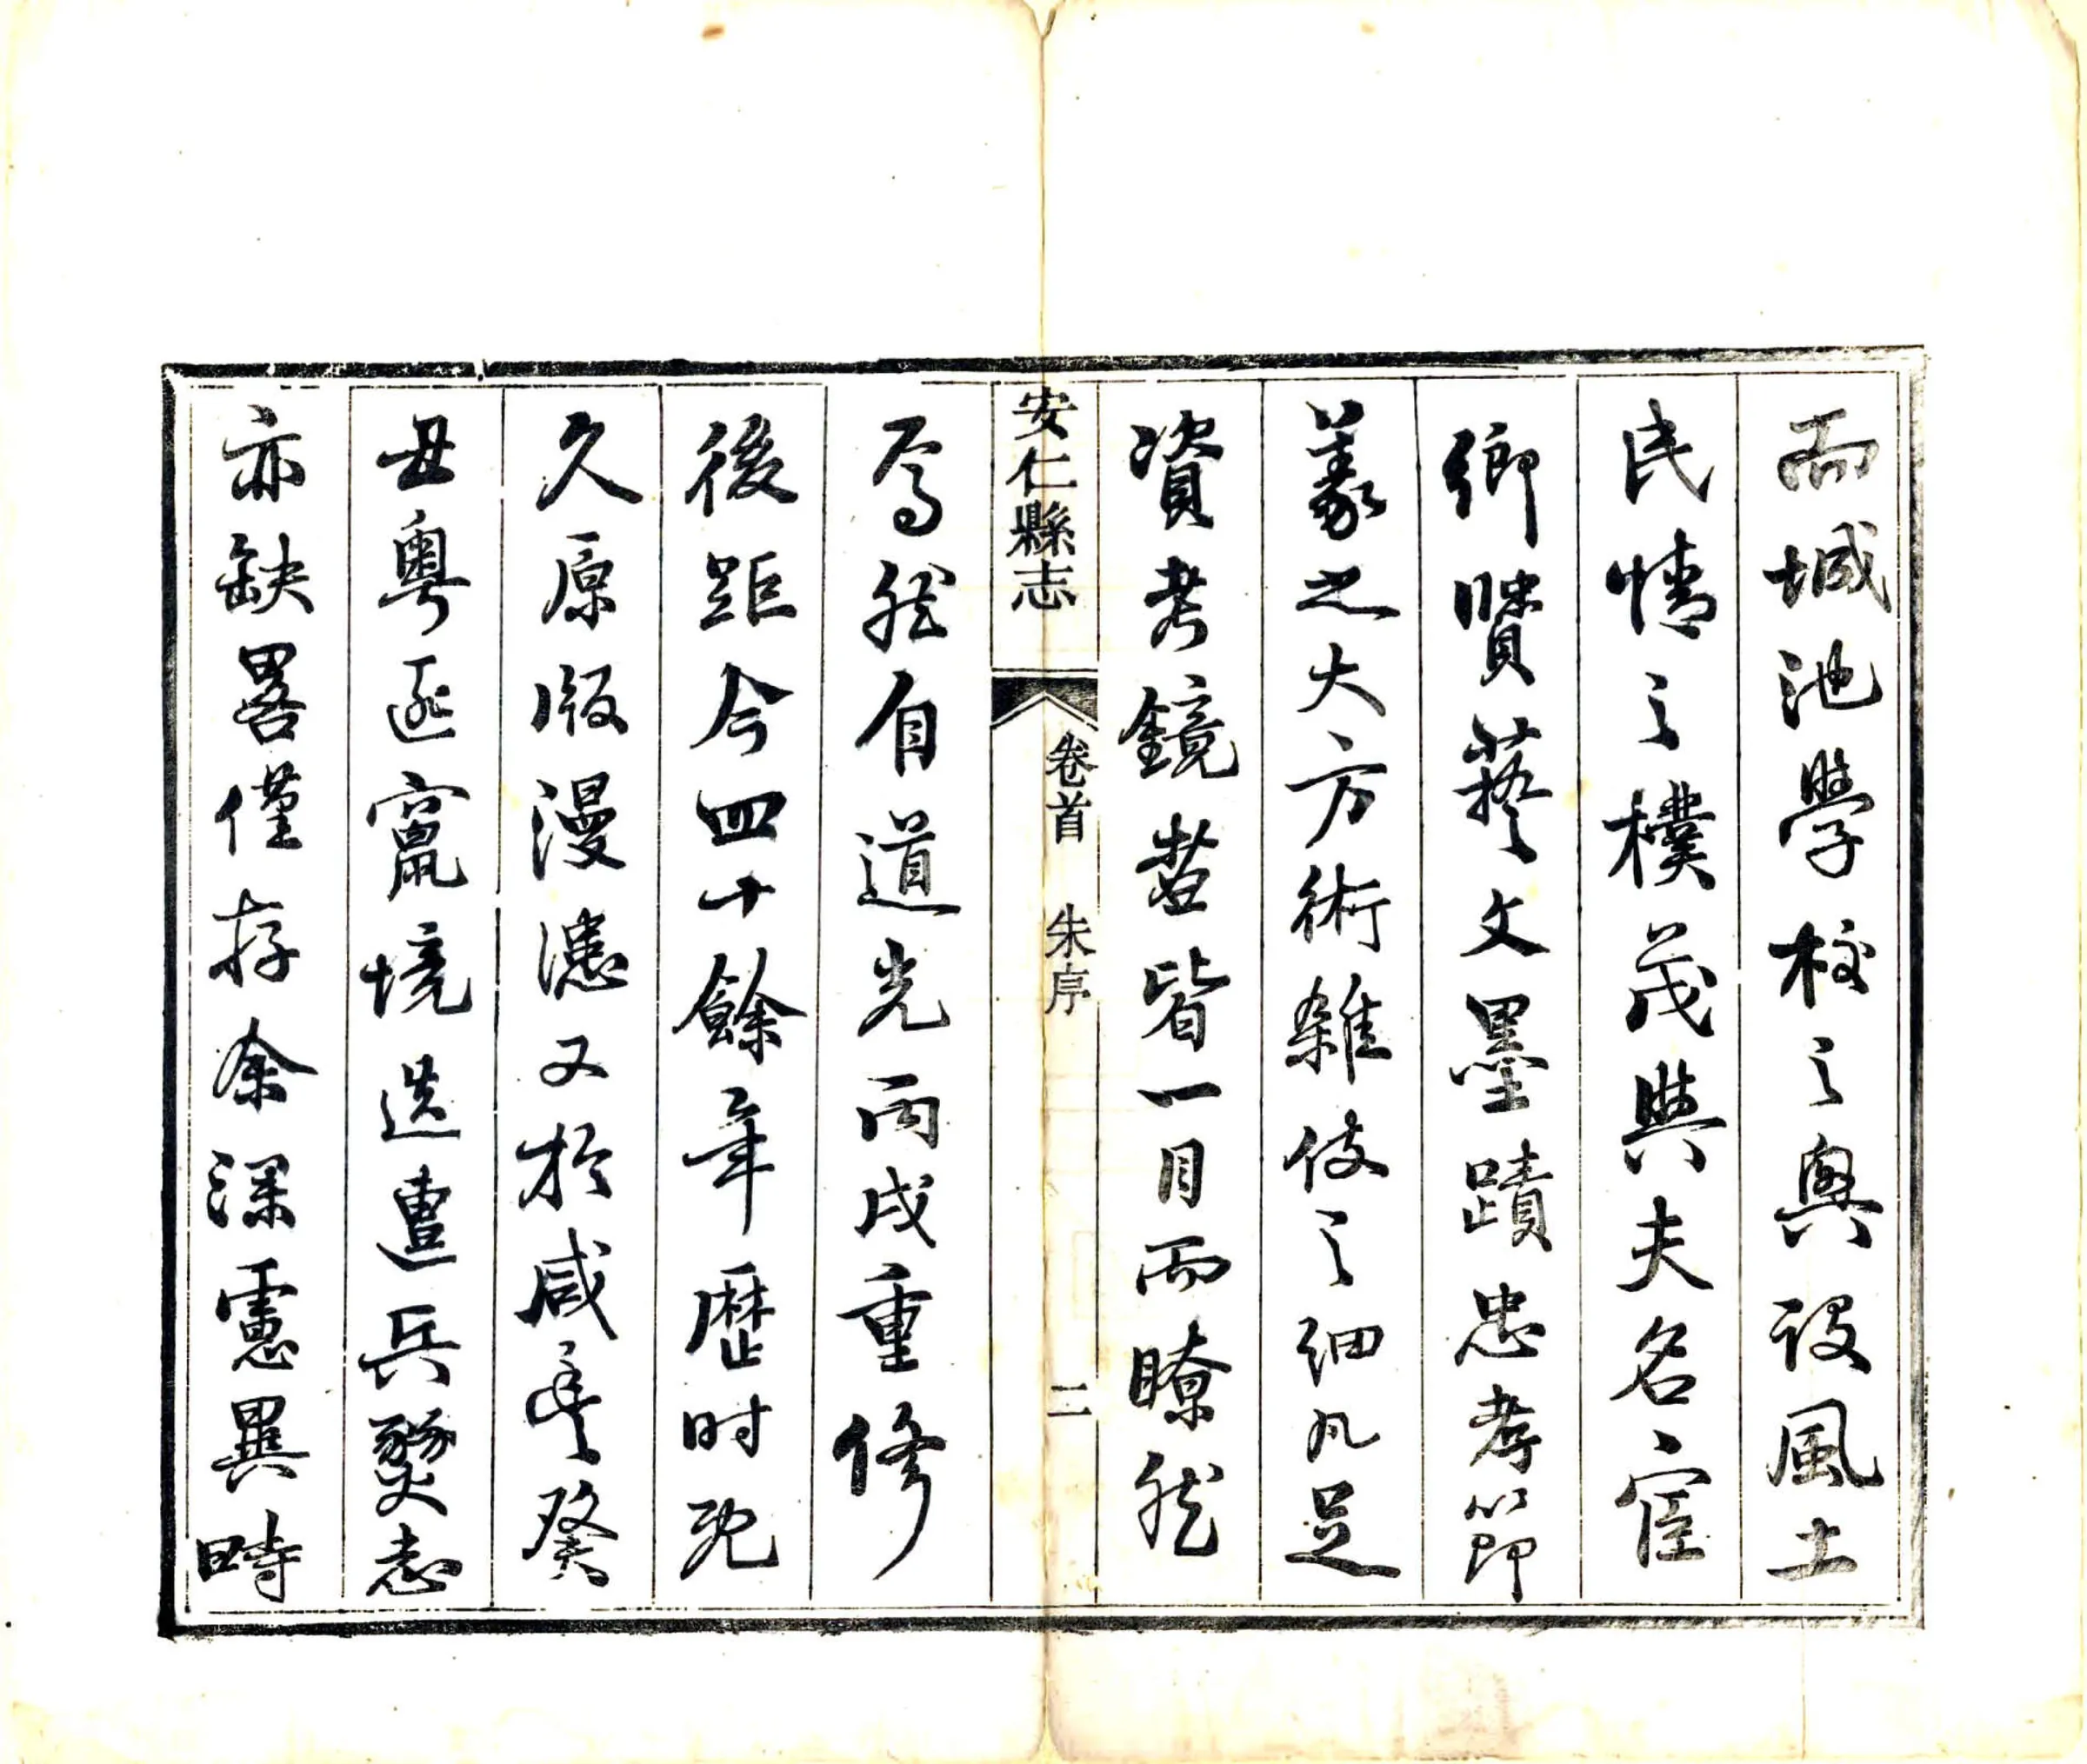 而城池學校之興設風土
民情之樸茂與夫名宦
鄉賢藝文墨蹟忠孝節
義之大方術雜伎之細凡足
資考鏡者皆一目而瞭然
安仁縣志 卷首 朱序 二
焉然自道光丙戌重修
後距今四十餘年歷时既
久原版漫漶又於咸豐癸
丑粵匪竄境迭遭兵燹志
亦缺畧僅存余深慮異時